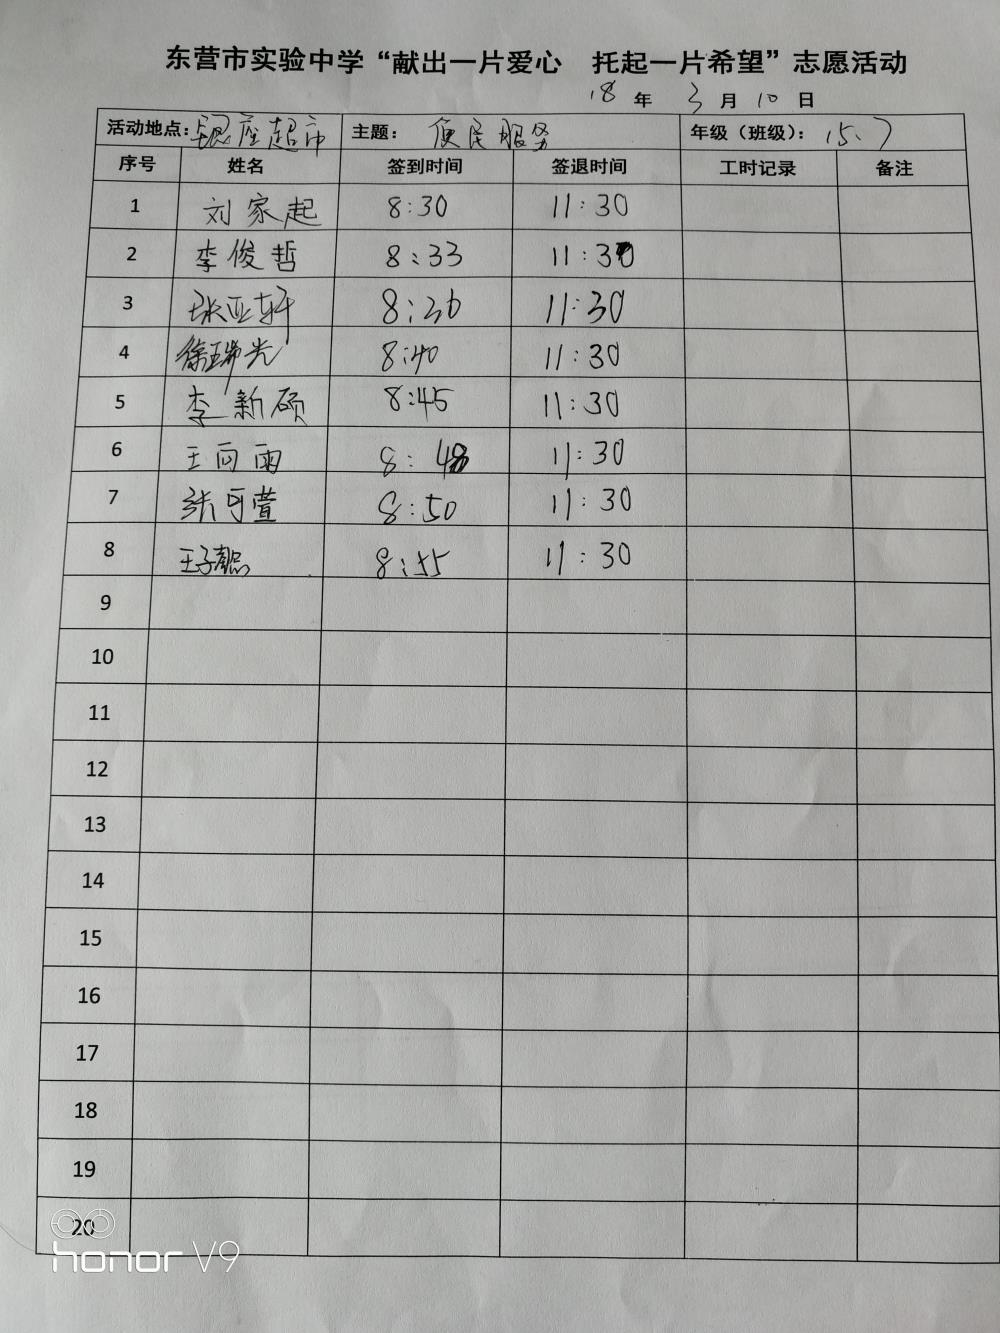 东营市实验中学“献出一片爱心 托起一片希望”志愿活动
18 年 3 月 10 日
活动地点：银座超市 主题： 便民服务 年级（班级）： 15.7
序号 姓名 签到时间 签退时间 工时记录 备注
1 刘家起 8:30 11:30
2 李俊哲 8:33 11:30
3 张亚轩 8:36 11:30
4 徐瑞光 8:40 11:30
5 李新硕 8:45 11:30
6 王向雨 8:48 11:30
7 张可萱 8:50 11:30
8 王子 8:55 11:30
9
10
11
12
13
14
15
16
17
18
19
20
honor V9